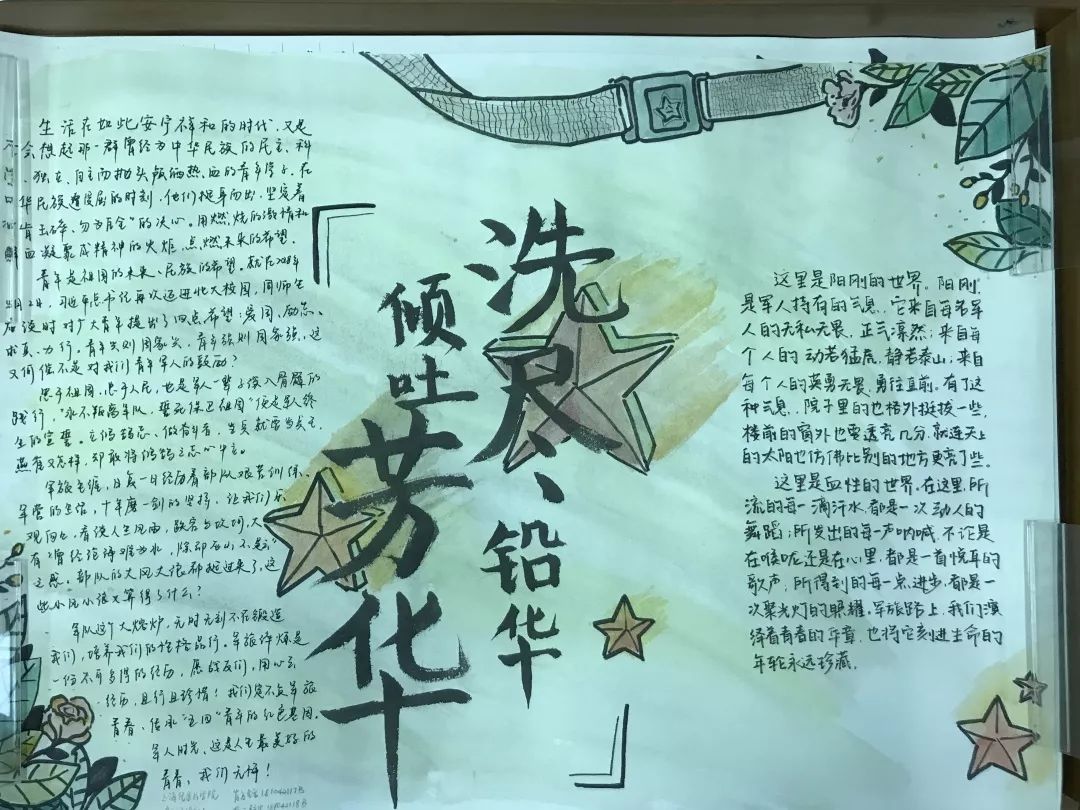 生活在如此安宁祥和的时代,又是
会想起那一群曾经为中华民族的民主、科
独立、自主而抛头颅洒热血的青年学子。在
华民族遭侵辱的时刻,他们挺身而出,坚定着
击碎,勿瓦全"的决心。用燃烧的激情和
血凝聚成精神的火炬,点燃未来的希望。
青年是祖国的未来、民族的希望。就在2018年
5月2日,习近平总书记再次走进北大校园,同师生
座谈时对广大青年提出了四点希望:爱国、励志、
求真、力行。青年兴则国家兴,青年强则国家强,这
又何尝不是对我们青年军人的鼓励?
忠于祖国,忠于人民,也是军人一辈子深入骨髓的
践行,"永不叛离军队,誓死保卫祖国"便是军人终
生的宣誓。
燕雀又怎样,却敢将鸿鹄之志心中立。
军旅生涯,日复一日经历着部队艰苦训练、
军营的生活,十年磨一剑的坚持,让我们
有"曾经沧海难为水,除却巫山不是云"
之感。部队的大风大浪都挺过来了,这
些小风小浪又算得了什么?
军队这个大熔炉,无时无刻不在锻造
我们,培养我们的性格品行。军旅作炼是
一份不可多得的经历,愿战友们,用心去
经历,且行且珍惜!我们定不负军旅
青春,传承"五四"青年的红色基因。
军人时光,这是人生最美好的
青春,我们无悔!
洗尽、铅华
倾吐、芳华
这里是阳刚的世界。阳刚,
是军人特有的气息,它来自每名军
人的无私无畏、正气凛然;来自每
个人的动若猛虎,静若泰山;来自
每个人的英勇无畏、勇往直前。有了这
种气息,院子里的也格外挺拔一些,
楼前的窗外也要透亮几分,就连天上
的太阳也仿佛比别的地方更亮了些。
这里是血性的世界。在这里,所
流的每一滴汗水,都是一次动人的
舞蹈;所发出的每一声呐喊,不论是
在喉咙还是在心里,都是一首悦耳的
歌声;所得到的每一点进步,都是一
次聚光灯的照耀。军旅路上,我们演
绎着青春的乐章,也将它刻进生命的
年轮永远珍藏。